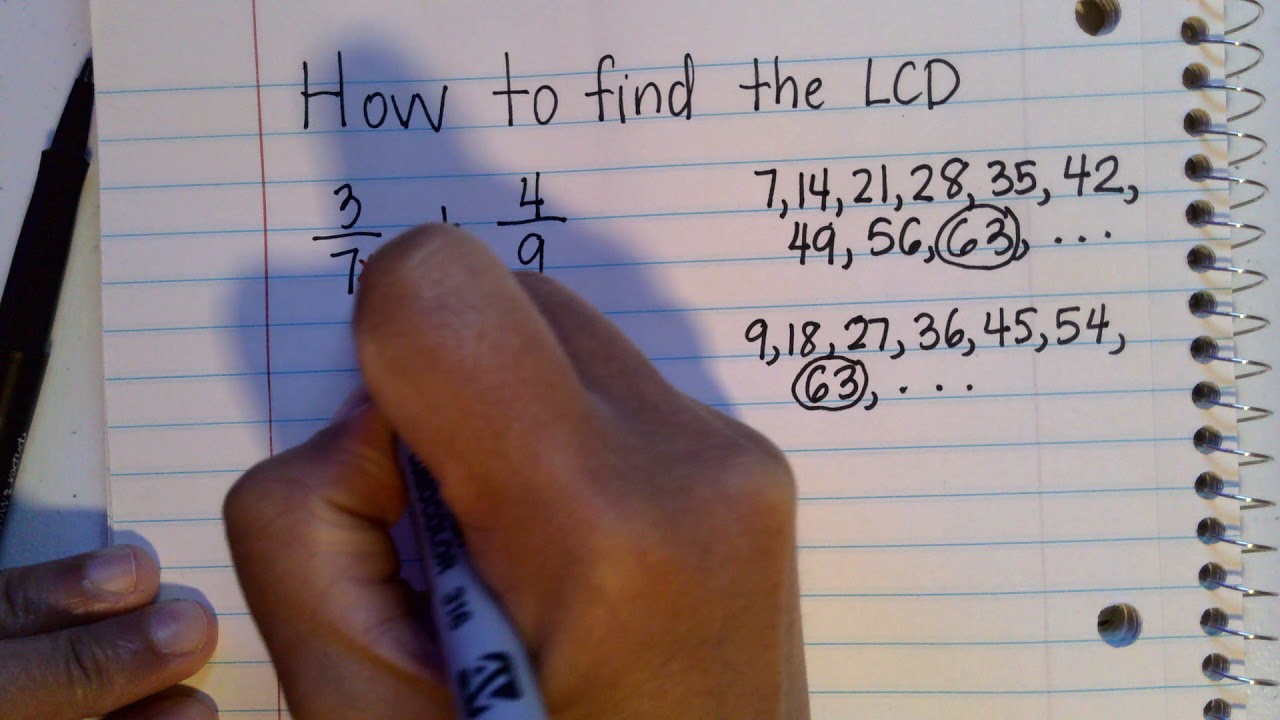 How to find the LCD
3 4
7 9
7, 14, 21, 28, 35, 42,
49, 56, 63, ...
9, 18, 27, 36, 45, 54,
63, ...
316